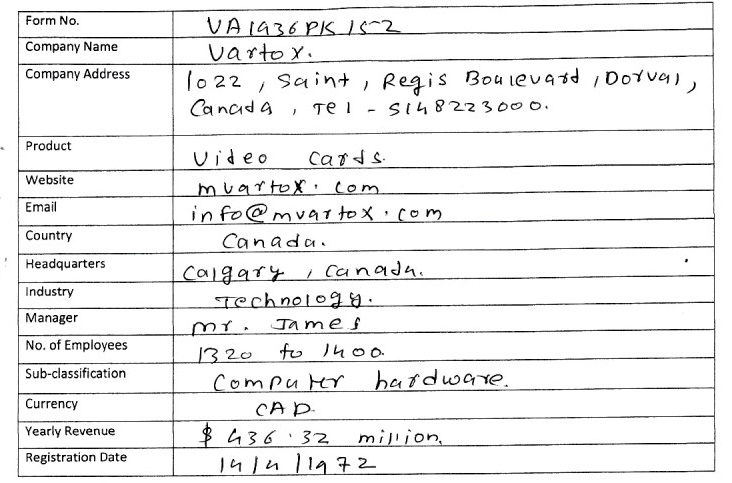 Form No. VA1936PK15-2
Company Name Vartox.
Company Address 1022, Saint, Regis Boulevard, Dorval,
Canada, Tel - 5148223000.
Product Video Cards.
Website mvartox.com
Email info@mvartox.com
Country Canada.
Headquarters Calgary, Canada.
Industry Technology.
Manager Mr. James
No. of Employees 1320 to 1400.
Sub-classification Computer hardware.
Currency CAD.
Yearly Revenue $ 436.32 million.
Registration Date 14/4/1972